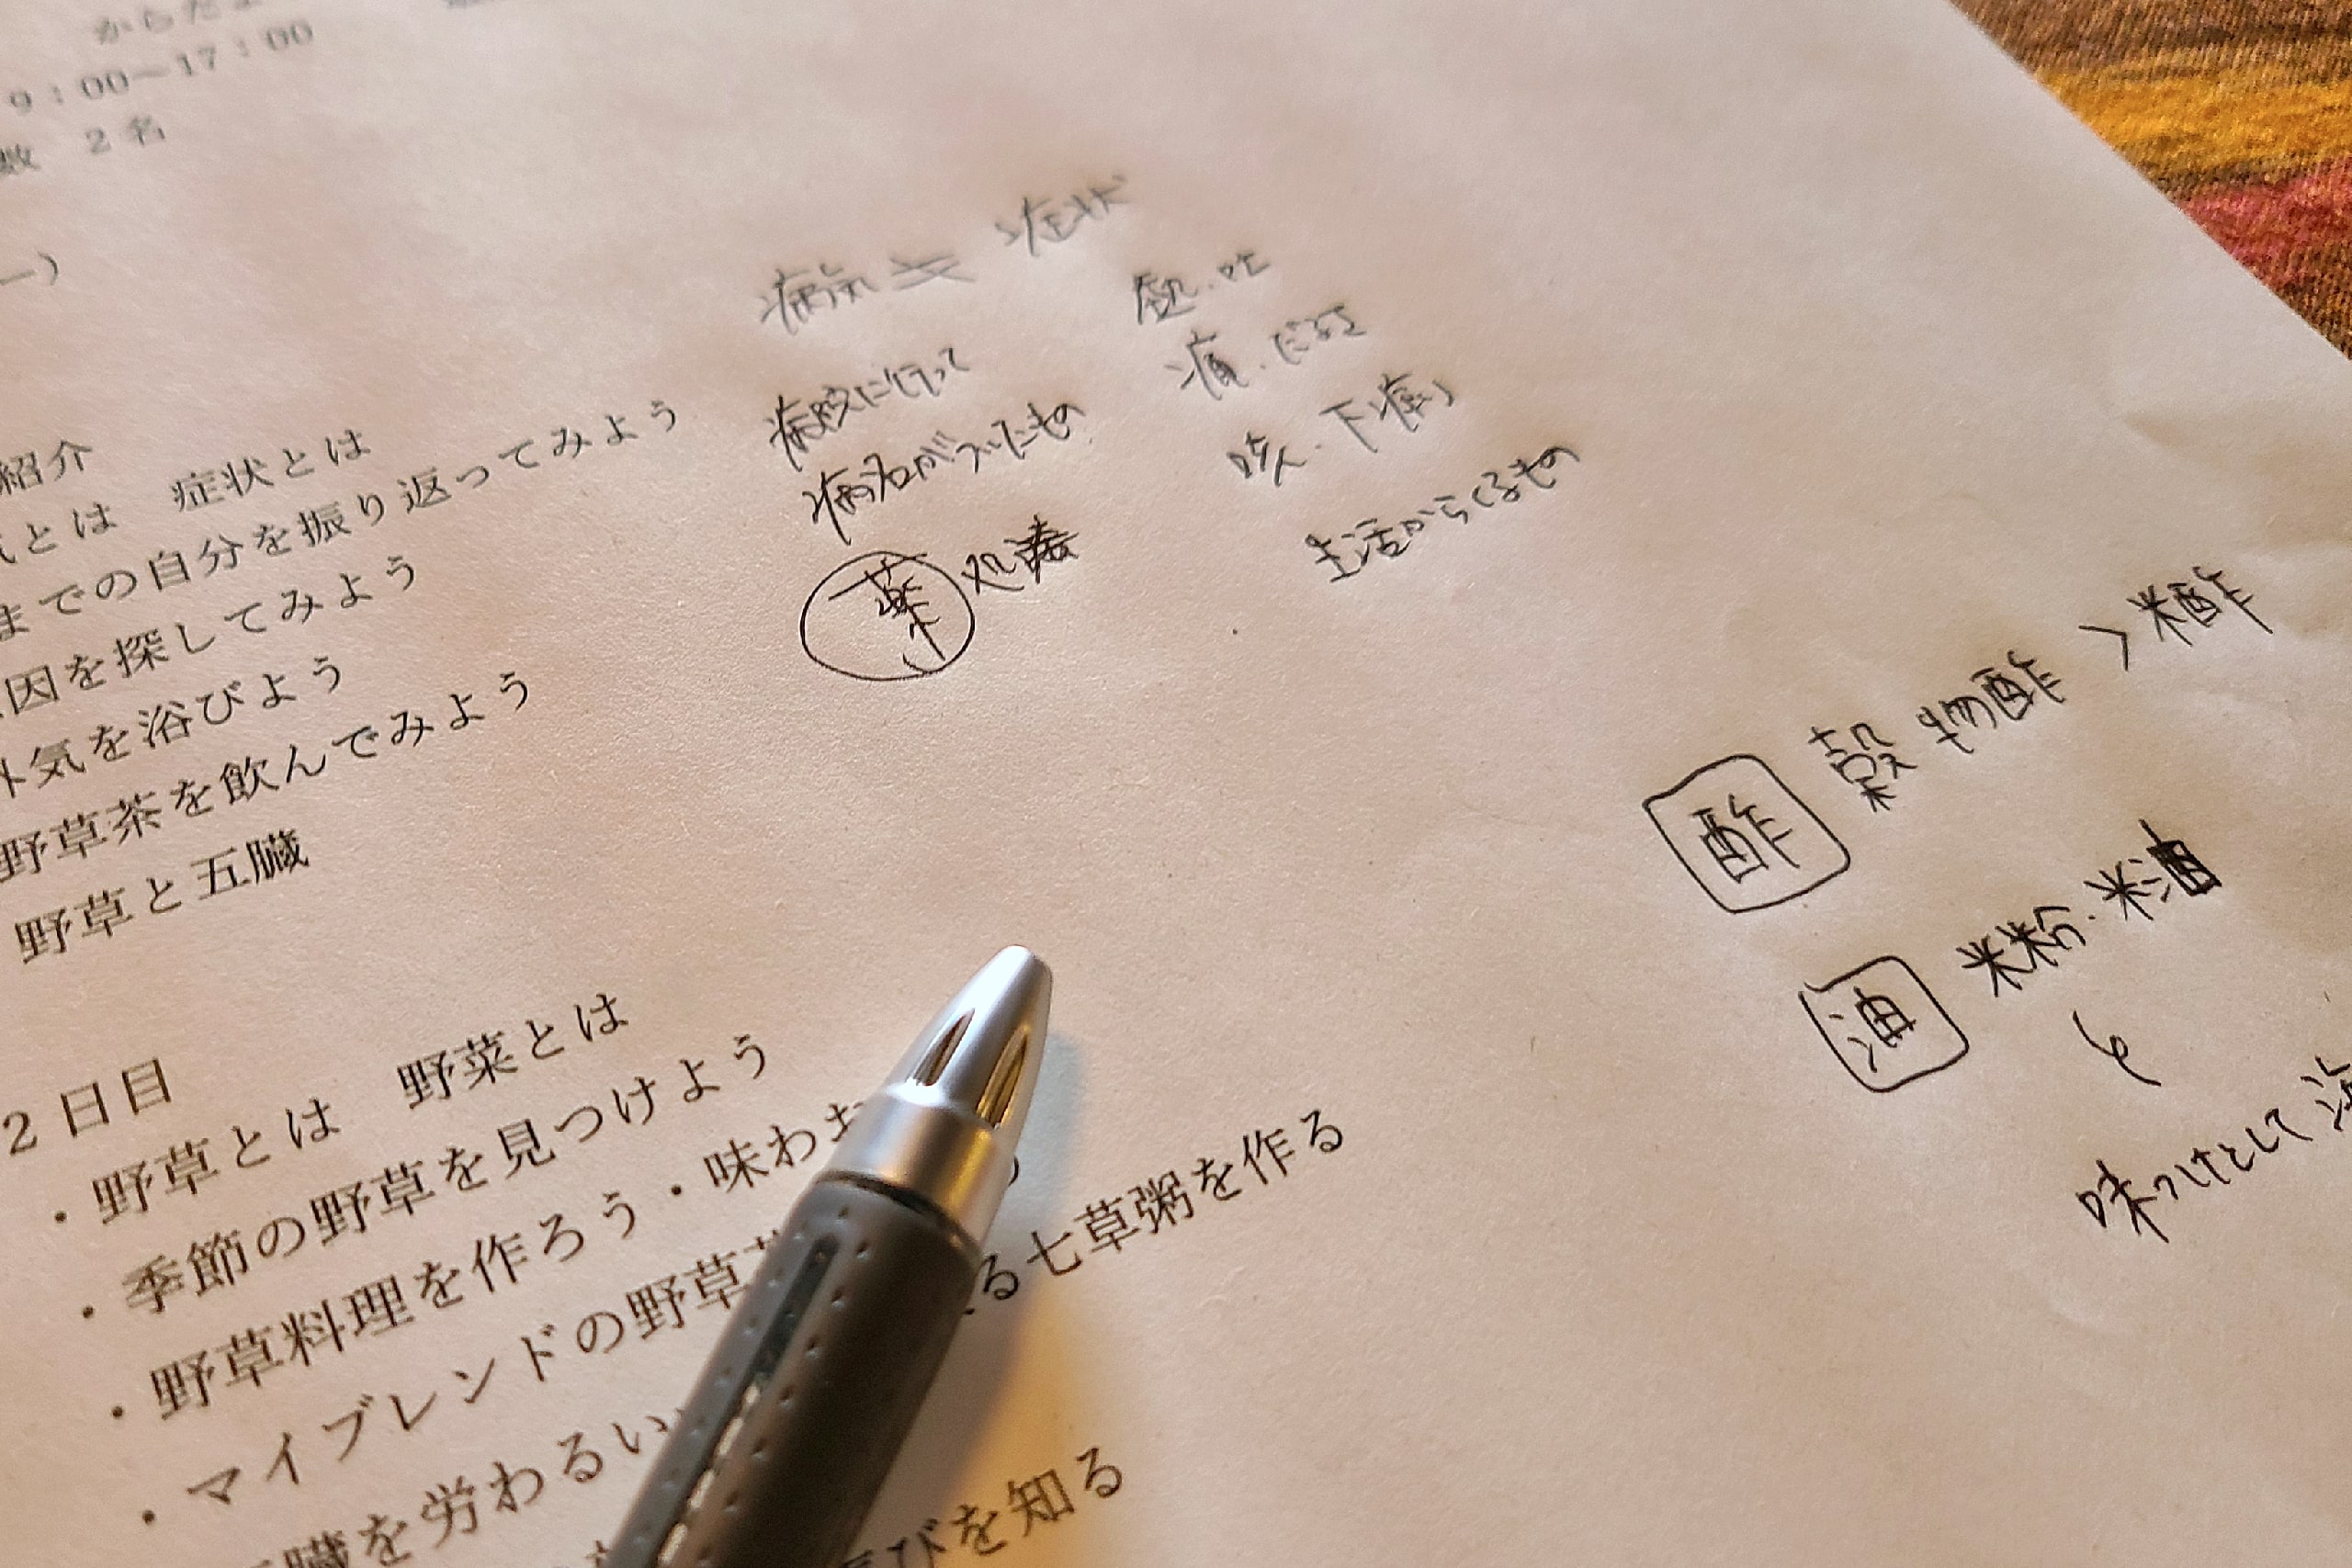 からだ
9：00～17：00
数　2名
ー）
紹介
とは　症状とは
までの自分を振り返ってみよう
因を探してみよう
外気を浴びよう
野草茶を飲んでみよう
野草と五臓
病気 症状
病院に行って
病名がついたもの
薬 処
熱・吐
痛・だるさ
咳・下痢
生活からくるもの
酢 穀物酢 > 米酢
油 米粉・米油
味つけとして
2日目
・野草とは　野菜とは
・季節の野草を見つけよう
・野草料理を作ろう・味わお
・マイブレンドの野草
る七草粥を作る
臓を労わる
びを知る